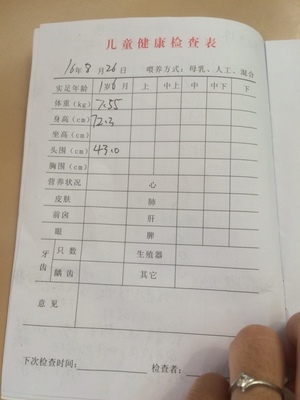 儿童健康检查表
16年8月26日 喂养方式:母乳、人工、混合
实足年龄 1岁6月 上 中上 中 中下 下
体重(kg) 7.55
身高(cm) 72.3
坐高(cm)
头围(cm) 43.0
胸围(cm)
营养状况 心
皮肤 肺
前囟 肝
眼 脾
牙齿 只数 生殖器
龋齿 其它
意见
下次检查时间: 检查者: